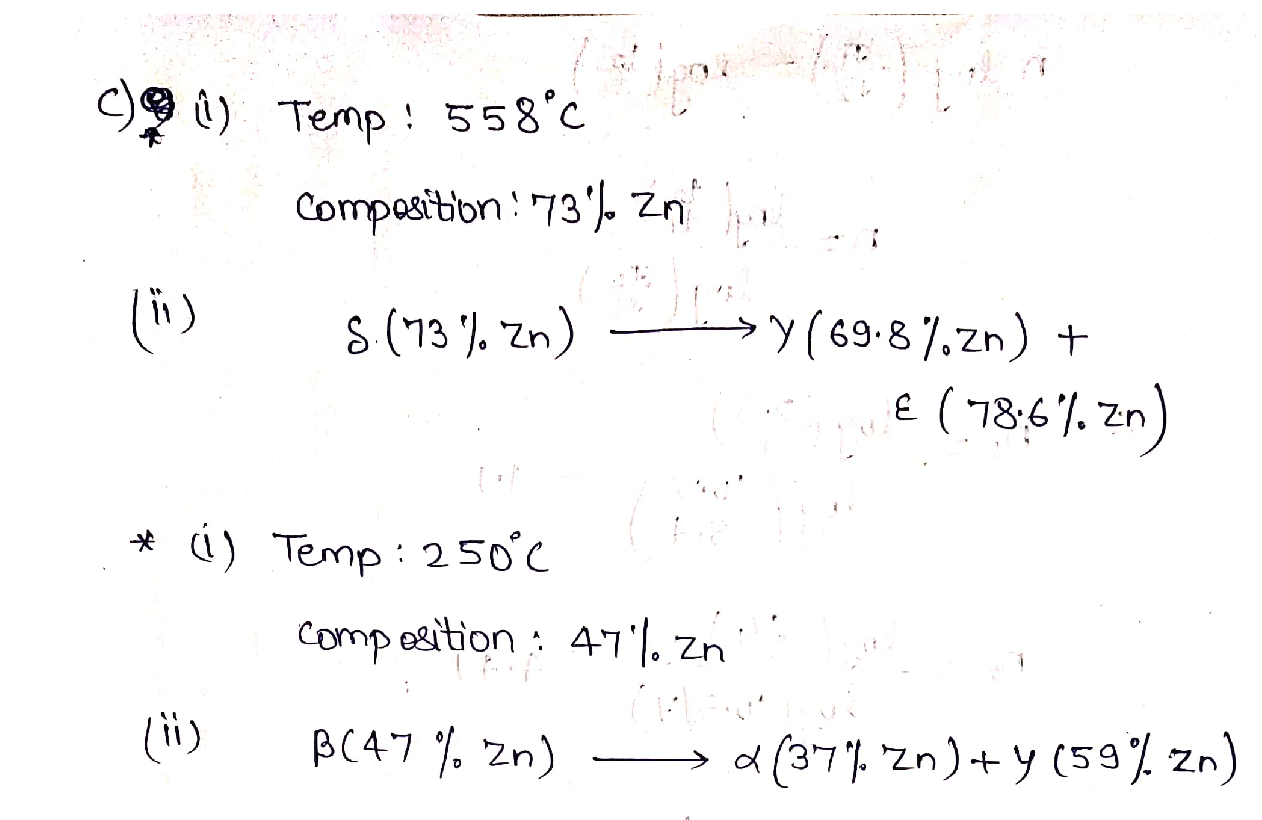 c) (i) Temp : 558°C
Composition : 73% Zn
(ii) δ (73% Zn) → γ (69.8% Zn) +
ε (78.6% Zn)
* (i) Temp : 250°C
Composition : 47% Zn
(ii) β (47% Zn) → α (37% Zn) + γ (59% Zn)